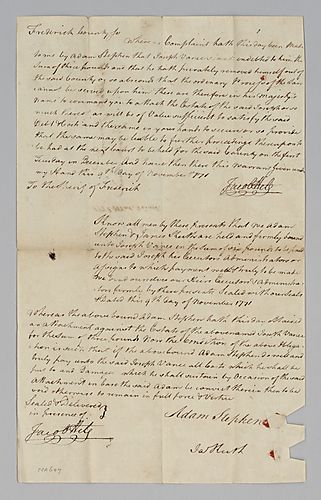 Frederick County ss
Whereas Complaint hath this day been made
to me by Adam Stephen that Joseph Vance is indebted to him the
Sum of three pounds and that he hath privately removed himself out of
the said County or so absconds that the ordinary Process of the Law
cannot be served upon him These are therefore in his Majesty's
Name to command you to attach the Estate of the said Joseph or so
much thereof as will be of Value sufficient to satisfy the said
Debt & Costs and the same in your hands to secure or so provide
that the same may be liable to further proceedings thereupon to
be had at the next Court to be held for the said County on the first
Tuesday in December And have then there this Warrant given under
my Hand this 9th day of November 1771
To the Sheriff of Frederick
Jacob Hite
Know all men by these presents that we Adam
Stephen & James Keith are held and firmly bound
unto Joseph Vance in the Sum of six pounds to be paid
to the said Joseph his Executors Administrators or
Assigns to which payment well & truly to be made
We bind ourselves our Heirs Executors & Administra-
tors firmly by these presents Sealed with our Seals
& Dated this 9th day of November 1771
Whereas the above bound Adam Stephen hath this day Obtained
an Attachment against the Estate of the above named Joseph Vance
for the Sum of three pounds Now the Condition of the above Obliga-
tion is such that if the above bound Adam Stephen do well and
truly pay unto the said Joseph Vance all Costs which he shall be
put to and Damages which he shall sustain by Occasion of the said
Attachment in Case the said Adam be cast therein then to be
void otherwise to remain in full force & Virtue
Sealed & Delivered
in presence of
Adam Stephen
Jacob Hite
Jas Keith
MA604